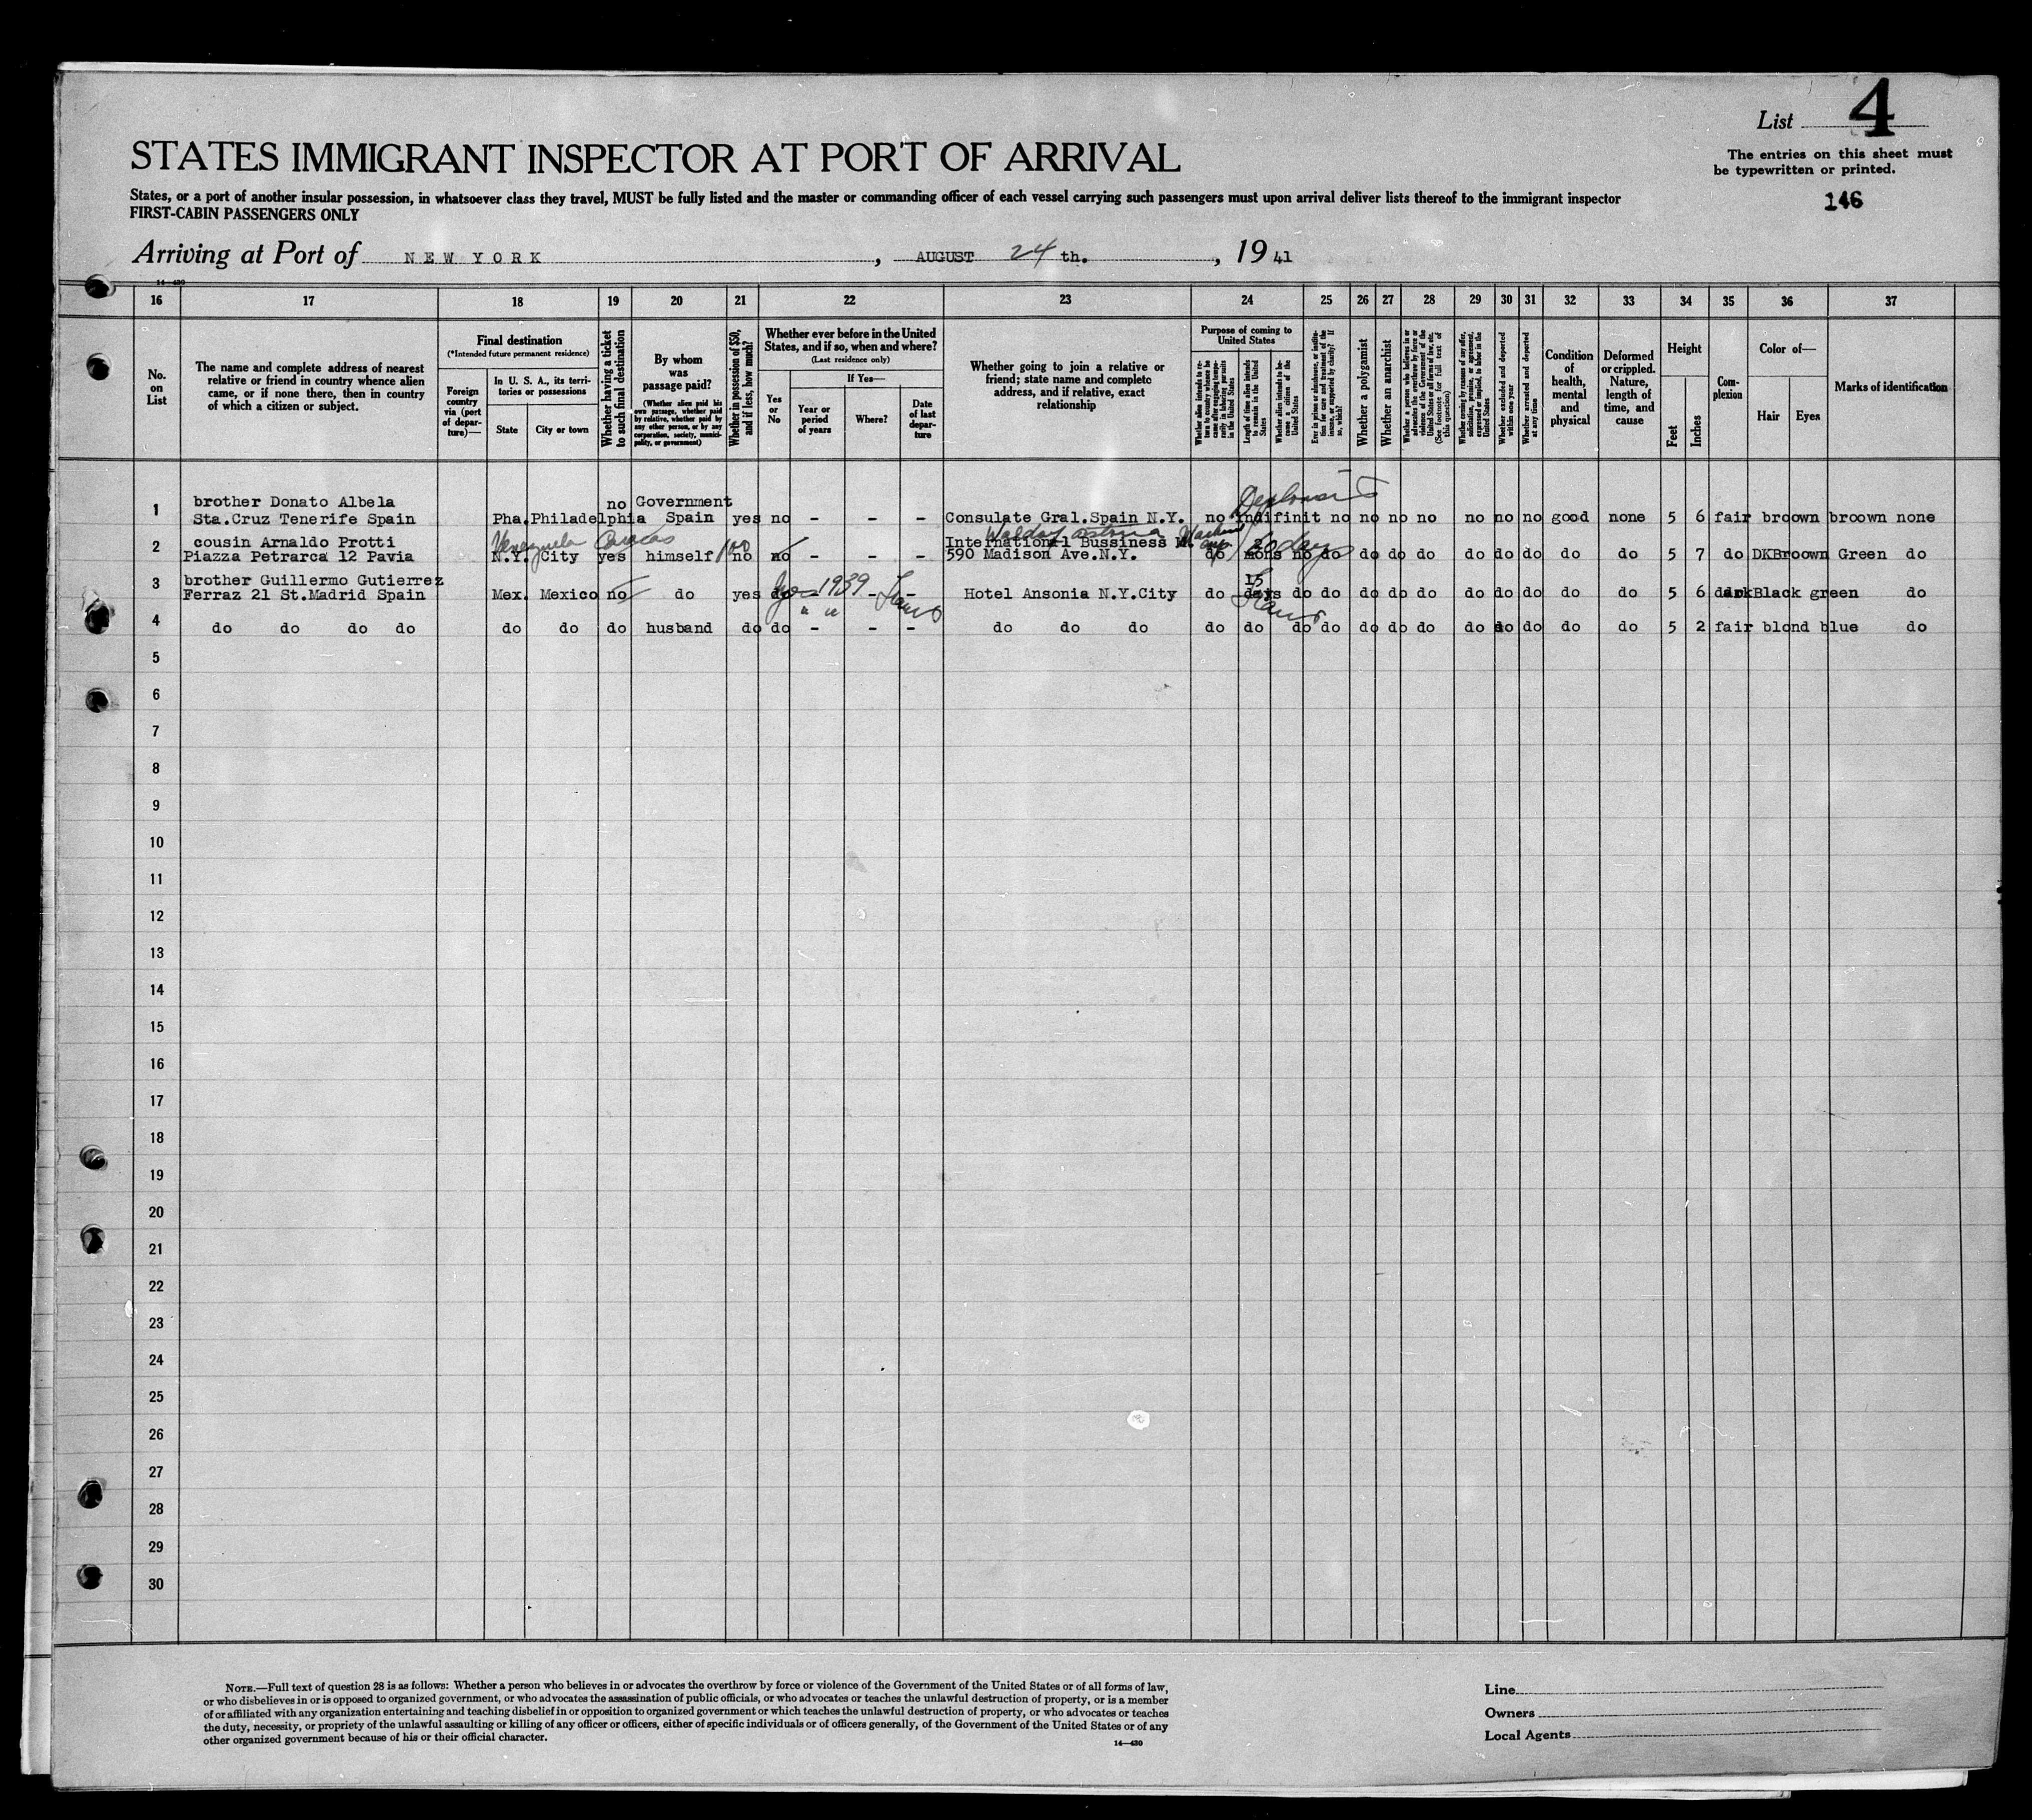 List 4
STATES IMMIGRANT INSPECTOR AT PORT OF ARRIVAL
The entries on this sheet must
be typewritten or printed.
States, or a port of another insular possession, in whatsoever class they travel, MUST be fully listed and the master or commanding officer of each vessel carrying such passengers must upon arrival deliver lists thereof to the immigrant inspector
FIRST-CABIN PASSENGERS ONLY
146
Arriving at Port of NEW YORK, AUGUST 24 th., 1941
14—430
16 17 18 19 20 21 22 23 24 25 26 27 28 29 30 31 32 33 34 35 36 37
No. on List
The name and complete address of nearest
relative or friend in country whence alien
came, or if none there, then in country
of which a citizen or subject.
Final destination
(*Intended future permanent residence)
Foreign country via (port of departure)—
In U. S. A., its territories or possessions
State
City or town
Whether having a ticket to such final destination
By whom was passage paid?
(Whether alien paid his own passage, whether paid by relative, whether paid by any other person, or by any corporation, society, municipality, or government)
Whether in possession of $50, and if less, how much?
Whether ever before in the United
States, and if so, when and where?
(Last residence only)
Yes or No
If Yes—
Year or period of years
Where?
Date of last departure
Whether going to join a relative or
friend; state name and complete
address, and if relative, exact
relationship
Purpose of coming to United States
Whether alien intends to return to country whence he came after engaging temporarily in laboring pursuits in the United States
Length of time alien intends to remain in the United States
Whether alien intends to become a citizen of the United States
Ever in prison or almshouse, or institution for care and treatment of the insane, or supported by charity? If so, which?
Whether a polygamist
Whether an anarchist
Whether a person who believes in or advocates the overthrow by force or violence of the Government of the United States or all forms of law, etc. (See footnote for full text of this question)
Whether coming by reasons of any offer, solicitation, promise, or agreement, expressed or implied, to labor in the United States
Whether excluded and deported within one year
Whether arrested and deported at any time
Condition of health, mental and physical
Deformed or crippled. Nature, length of time, and cause
Height
Feet
Inches
Complexion
Color of—
Hair
Eyes
Marks of identification
1 brother Donato Albela no Government
Sta.Cruz Tenerife Spain Pha. Philadelphia Spain yes no - - - Consulate Gral.Spain N.Y. no indifinit no no no no no no no good none 5 6 fair broown broown none
2 cousin Arnaldo Protti Venezuela Caracas 100 Waldorf Astoria International Bussiness M.
Piazza Petrarca 12 Pavia N.Y. City yes himself no no - - - 590 Madison Ave.N.Y. do mons no do do do do do do do do do 5 7 do DKBroown Green do
20 days
3 brother Guillermo Gutierrez 15
Ferraz 21 St.Madrid Spain Mex. Mexico no do yes do Yes 1939 - - Hotel Ansonia N.Y.City do days do do do do do do do do do do 5 6 dark Black green do
" "
4 do do do do do do do husband do do - - - do do do do do do do do do do do do do do do 5 2 fair blond blue do
5
6
7
8
9
10
11
12
13
14
15
16
17
18
19
20
21
22
23
24
25
26
27
28
29
30
NOTE.—Full text of question 28 is as follows: Whether a person who believes in or advocates the overthrow by force or violence of the Government of the United States or of all forms of law,
or who disbelieves in or is opposed to organized government, or who advocates the assassination of public officials, or who advocates or teaches the unlawful destruction of property, or is a member
of or affiliated with any organization entertaining and teaching disbelief in or opposition to organized government or which teaches the unlawful destruction of property, or who advocates or teaches
the duty, necessity, or propriety of the unlawful assaulting or killing of any officer or officers, either of specific individuals or of officers generally, of the Government of the United States or of any
other organized government because of his or their official character.
14—430
Line
Owners
Local Agents